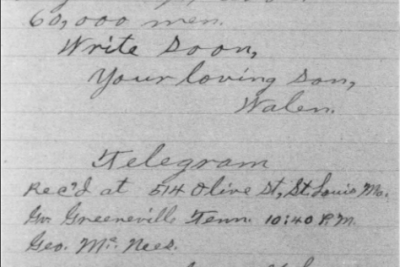 60,000 men.
Write Soon,
Your loving Son,
Walen.
Telegram
Rec'd at 514 Olive St, St. Louis Mo.
Greeneville Tenn. 10:40 P.M.
Geo. Mc Nees.